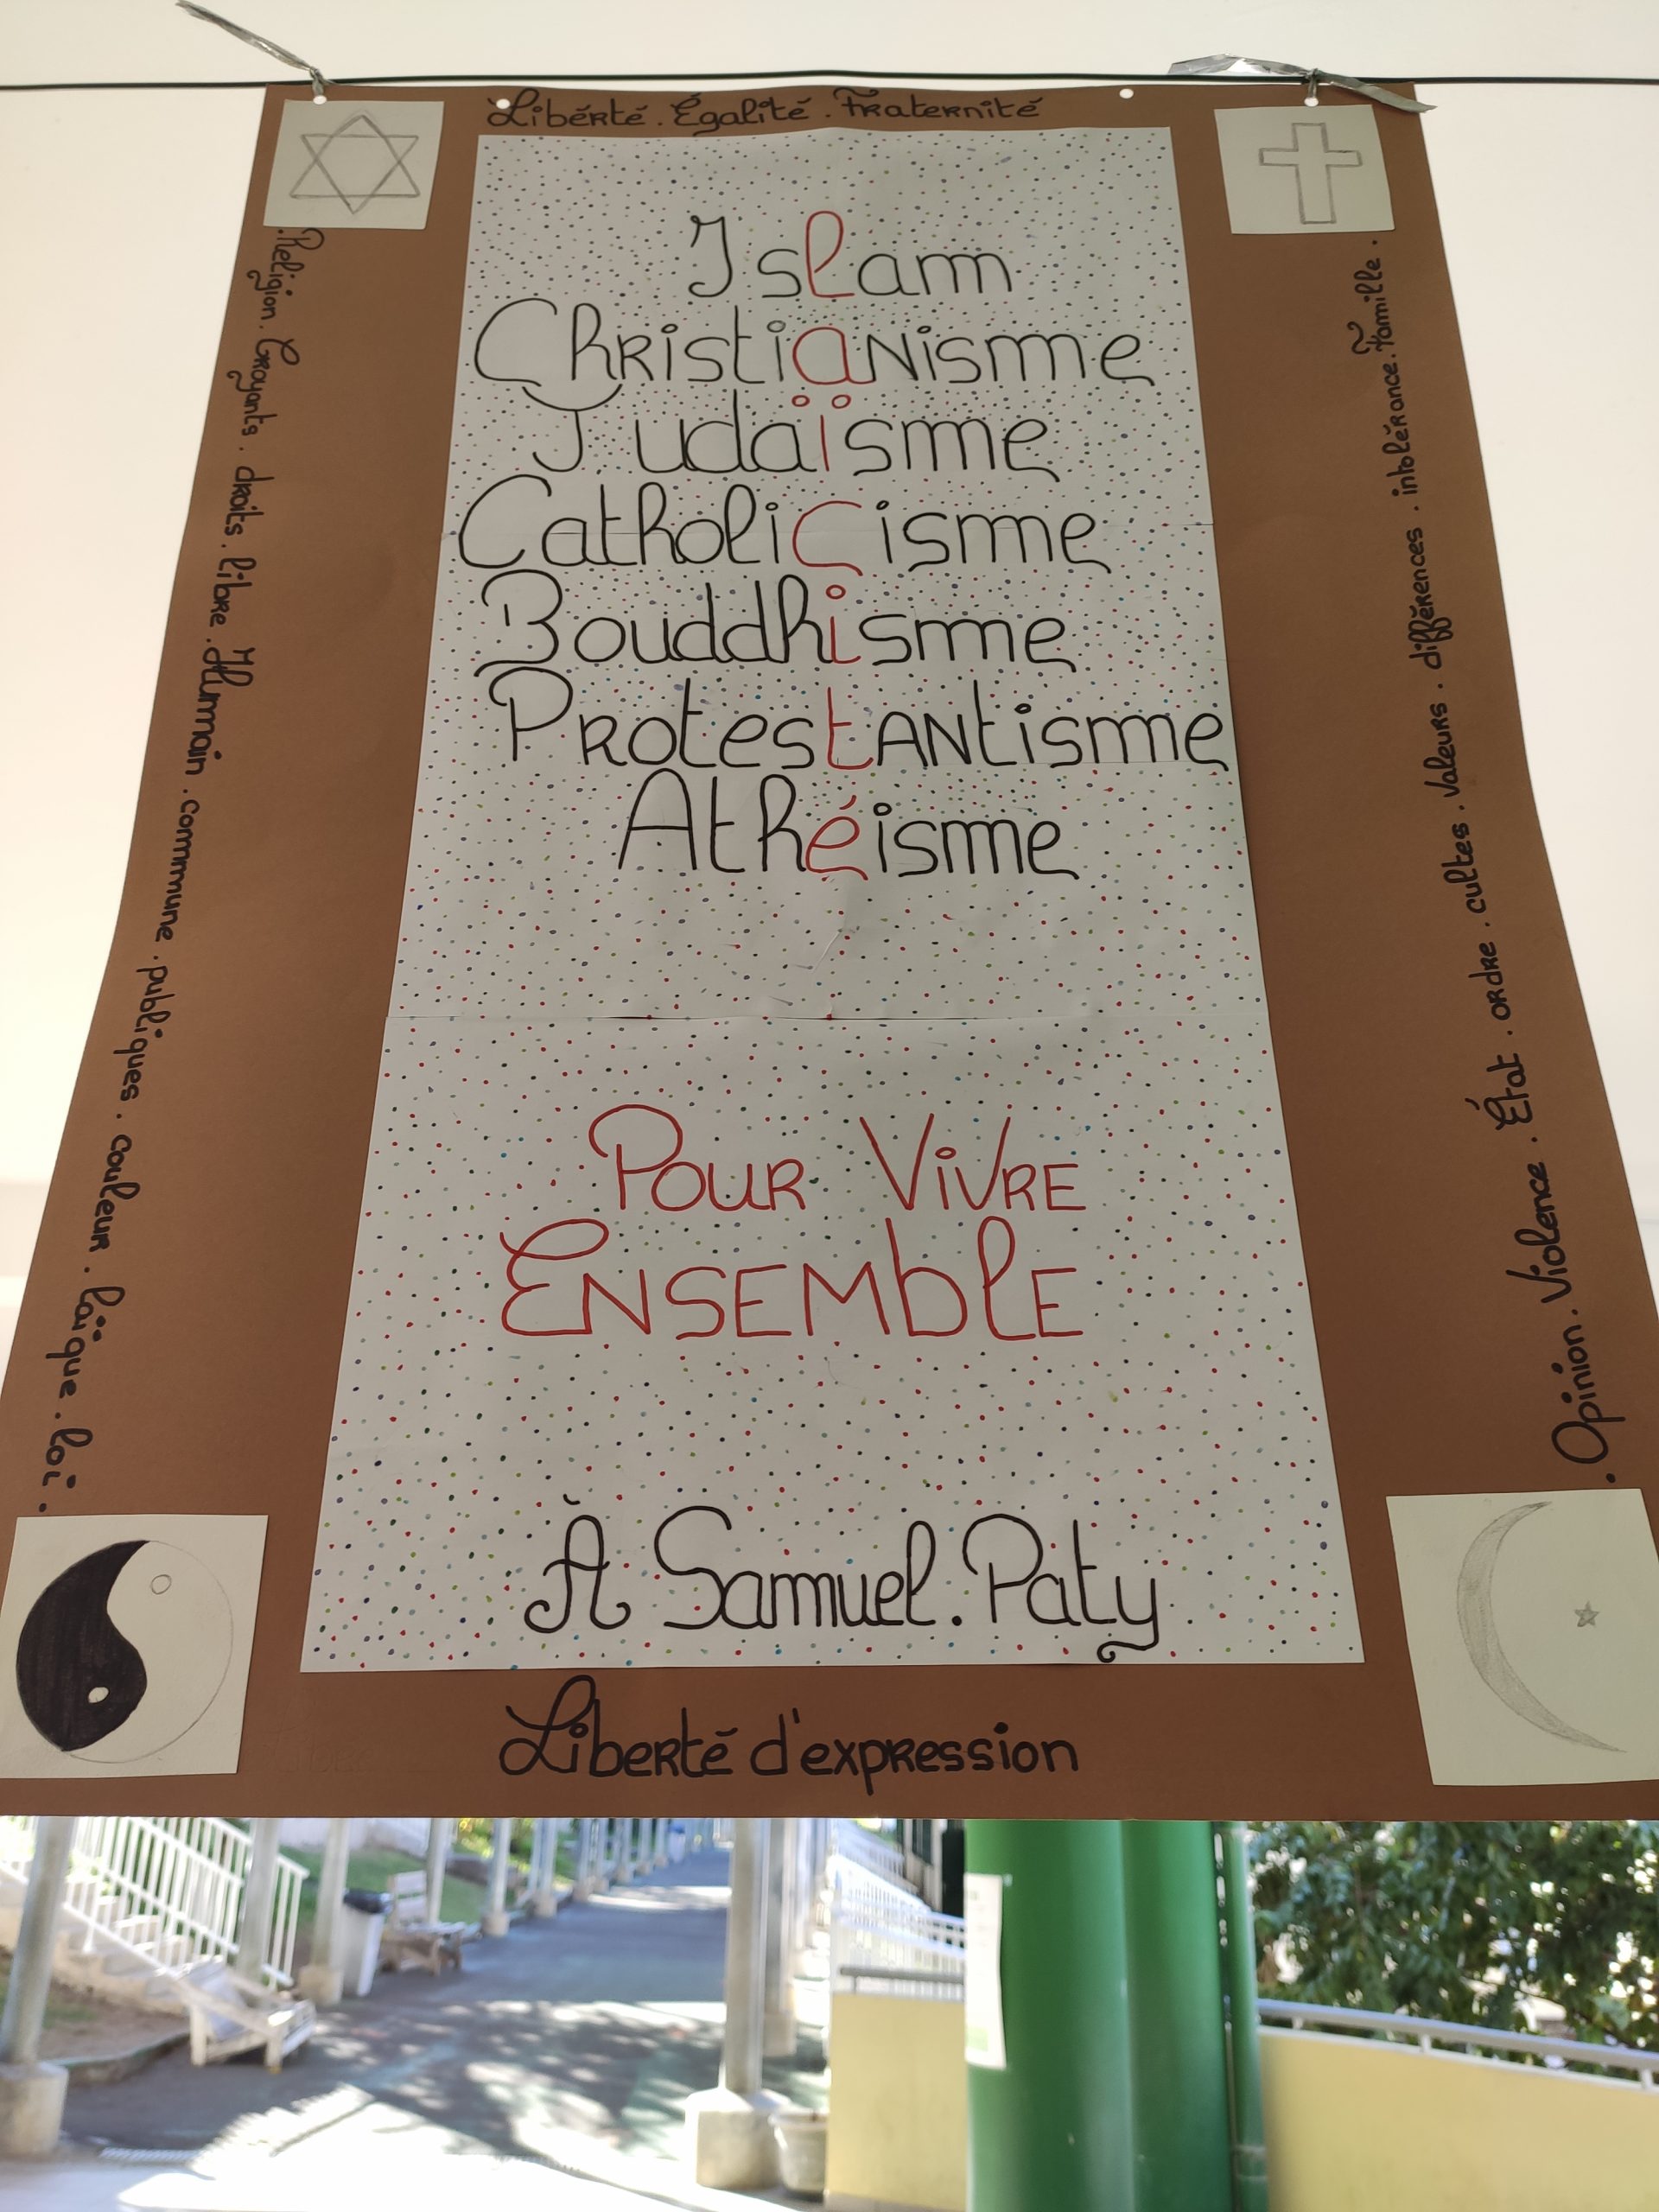 Liberté. Égalité. Fraternité
Religion. Croyants. droits. libre. Humain. commune. publiques. couleur. laïque. loi.
Islam
Christianisme
Judaïsme
Catholicisme
Bouddhisme
Protestantisme
Athéisme
Pour Vivre
Ensemble
À Samuel. Paty
. Opinion. Violence. État. ordre. cultes. Valeurs. différences. intolérance. Famille.
Liberté d'expression